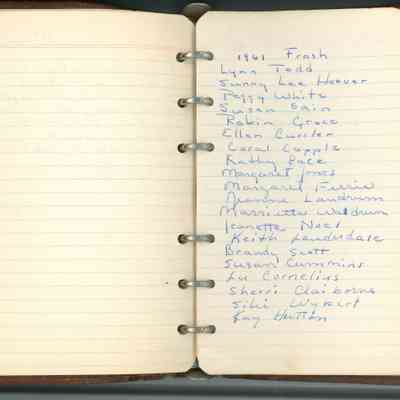 1961 Frosh
Lynn Todd
Sunny Lee Hoover
Peggy White
Susan Cain
Robin Grace
Ellen
Carol Capple
Kathy Pace
Margaret Jones
Margaret Ferrie
Jeanne Landrum
Marrietta Waldrum
Jeanette Noel
Keith Lauderdale
Brandy Scott
Susan Cummins
Lu Cornelius
Sherri Claiborne
Kay Hutton